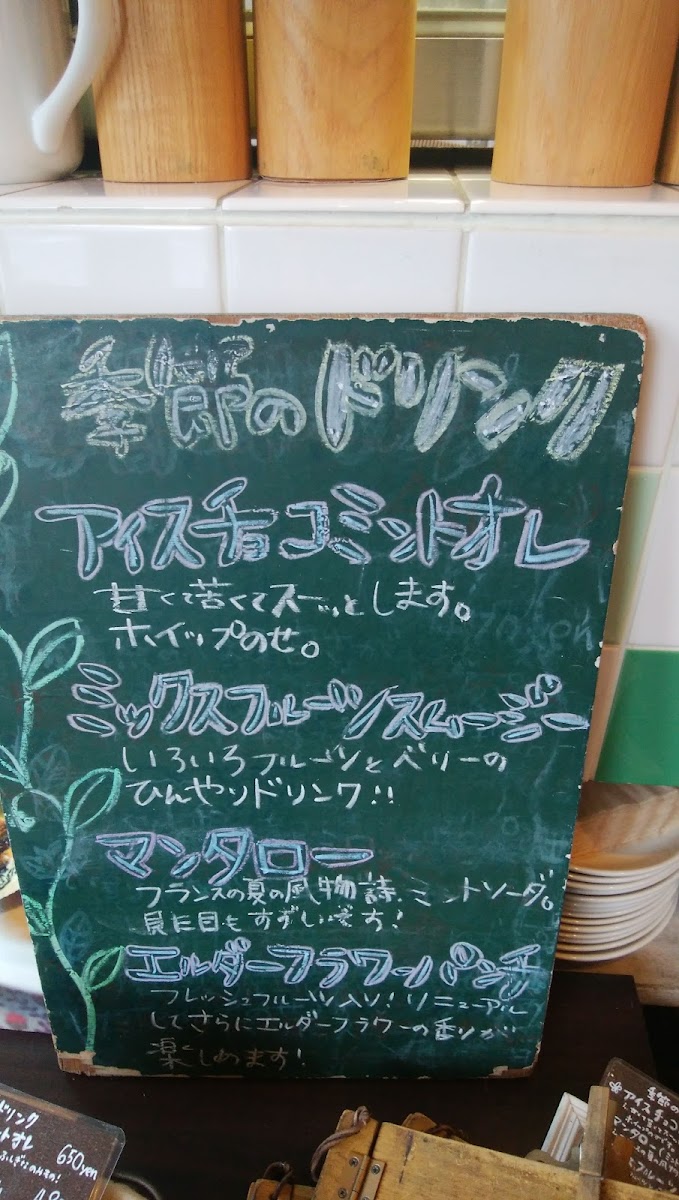 季節のドリンク
アイスチョコミントオレ
甘くて苦くてスーッとします。
ホイップのせ。
ミックスフルーツスムージー
いろいろフルーツとベリーの
ひんやりドリンク!!
マンタロー
フランスの夏の風物詩、ミントソーダ。
見た目もすずしいです!
エルダーフラワーパンチ
フレッシュフルーツ入り!リニューアル
してさらにエルダーフラワーの香りが
楽しめます!
ドリンク
650yen
季節の
アイスチョコ
マンタロ